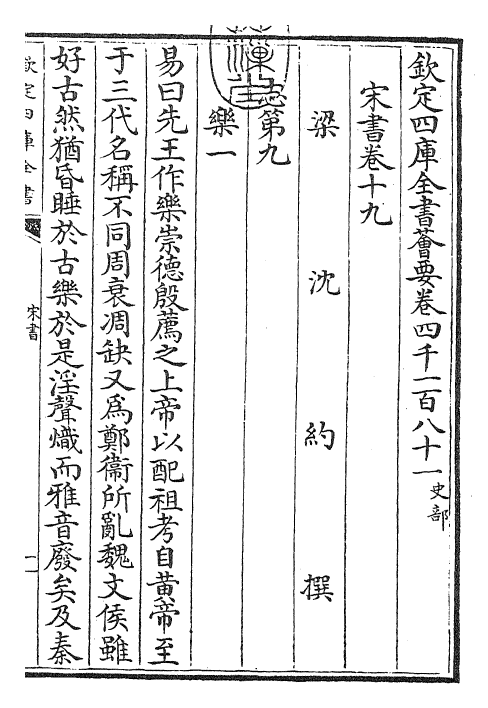 欽定四庫全書薈要卷四千一百八十一 史部
宋書卷十九
梁 沈 約 撰
志第九
樂一
易曰先王作樂崇德殷薦之上帝以配祖考自黄帝至
于三代名稱不同周衰凋缺又爲鄭衞所亂魏文侯雖
好古然猶昏睡於古樂於是淫聲熾而雅音廢矣及秦
欽定四庫全書
宋書
一